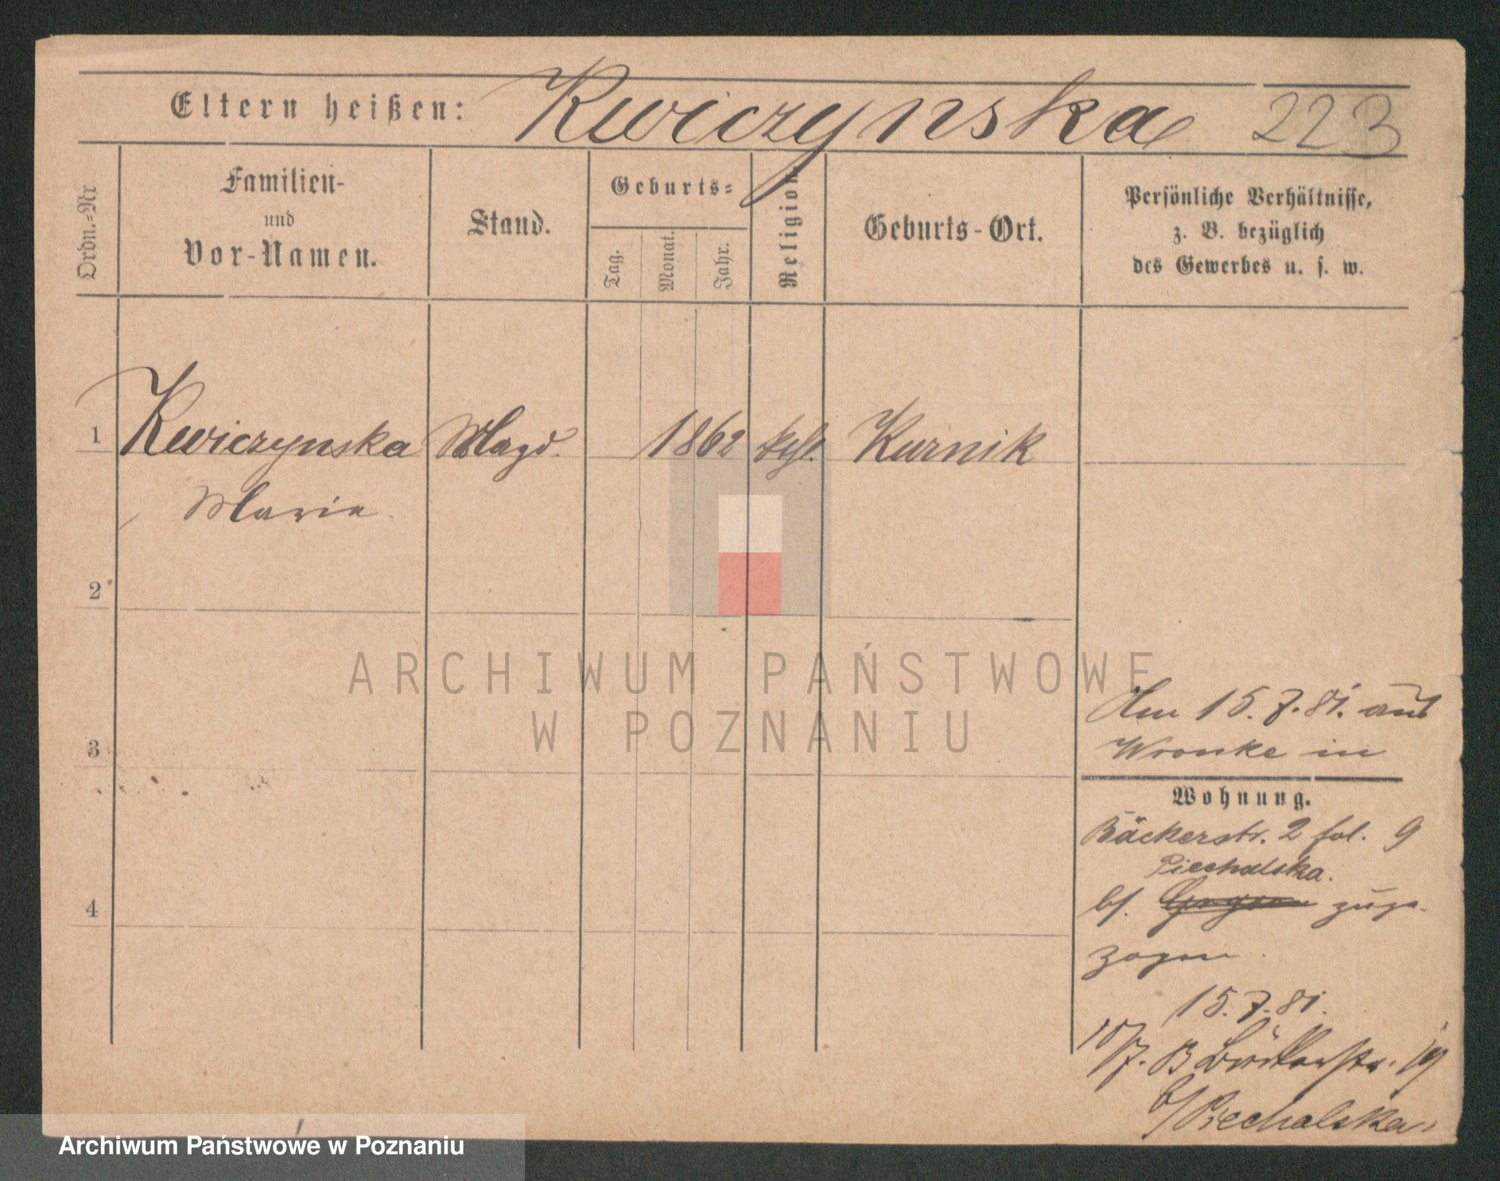 Eltern heißen: Kwiczynska 223
Ordn.-Nr
Familien-
und
Vor-Namen.
Stand.
Geburts-
Tag.
Monat.
Jahr.
Religion
Geburts-Ort.
Persönliche Verhältnisse,
z. B. bezüglich
des Gewerbes u. s. w.
1 Kwiczynska Magd. 1862 kth. Kurnik
Marie
2
3
4
ARCHIWUM PAŃSTWOWE
W POZNANIU
Am 15.7.81. aus
Wronke in
Wohnung.
Bäckerstr. 2 fol. 9
Piechalska.
bf. zuge-
zogen.
15.7.81.
Bäckerstr. 19
b/ Piechalska
Archiwum Państwowe w Poznaniu